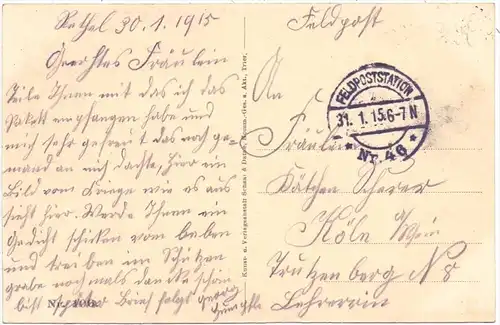 Rethel 30.1.1915
Geerhtes Fräulein
Teile Ihnen mit das ich das
Pakett empfangen habe und
mich sehr gefreut das noch je-
mand an mich dachte, hier ein
Bild vom Kriege wie es aus
sieht hier. Werde Ihnen ein
Gedicht schicken vom Leben
und treiben im Schützen
grabe nochmals danke schön
bist später Brief folgt Georg
Nr. 106.
Kunst- u. Verlagsanstalt Schaar & Dathe, Komm.-Ges. a. Akt., Trier.
Feldpost
FELDPOSTSTATION
31.1.15.6-7N
* Nr. 46 *
An
Fräulein
Käthchen Scherer
Köln a/Rhein
Trutzenberg N 8
Lehrerin